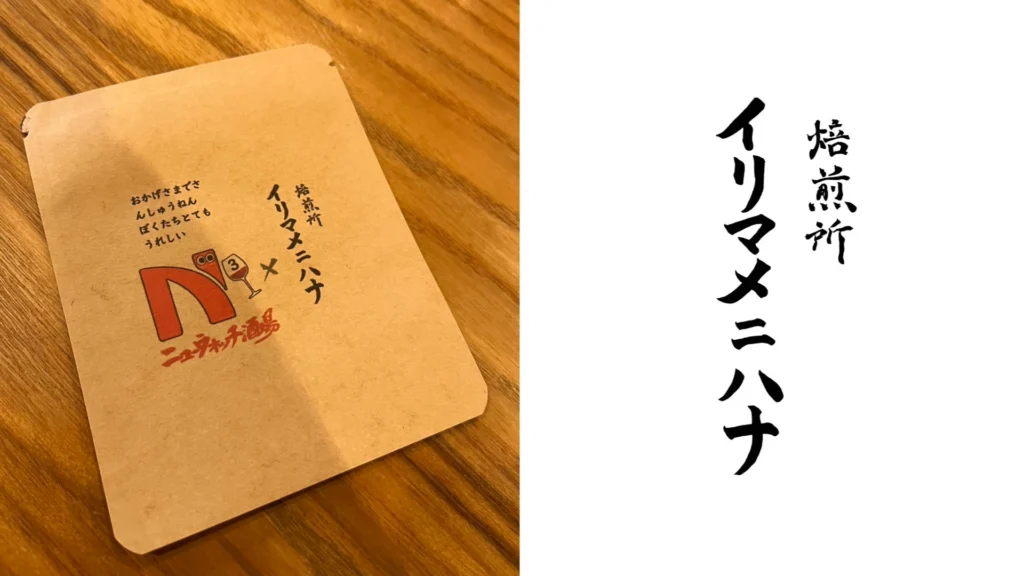 焙煎所
イリマメニハナ
おかげさまでさ
んしゅうねん
ぼくたちとても
うれしい
3
×
ニューラッキー酒場
焙煎所
イリマメニハナ